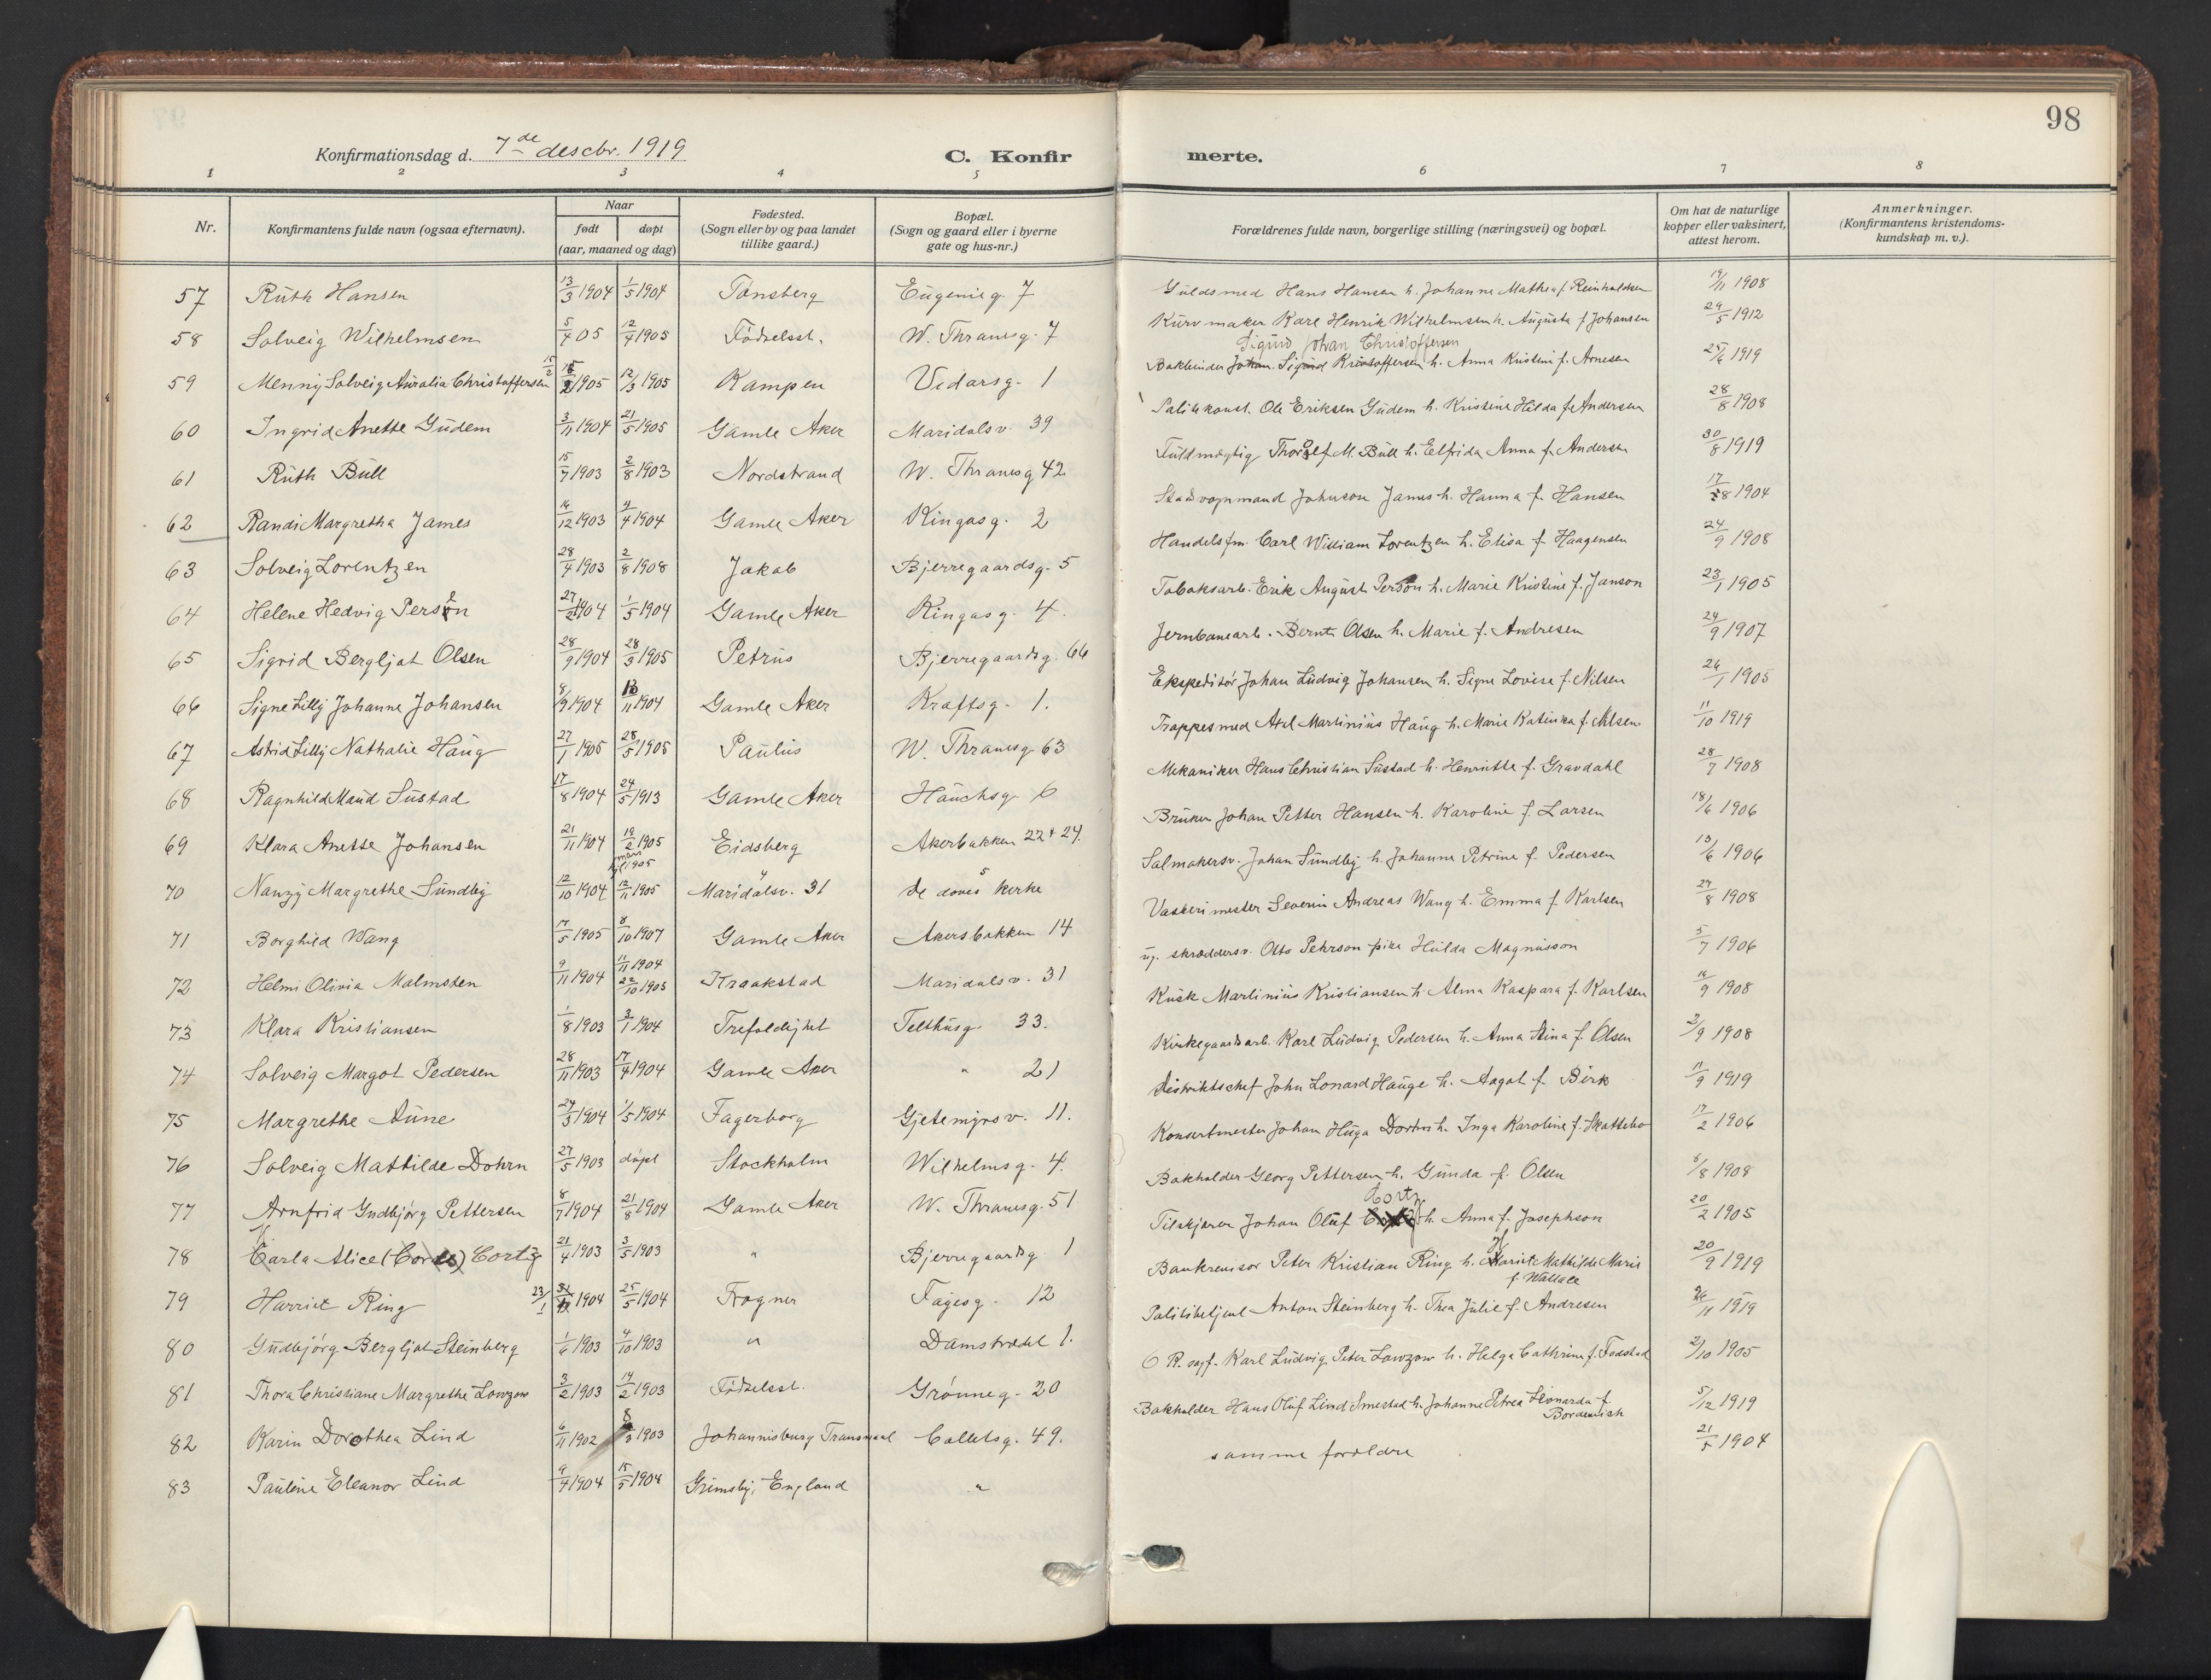 98
Konfirmationsdag d. 7de descbr. 1919 C. Konfirmerte.
1 2 3 4 5 6 7 8
Nr. Konfirmantens fulde navn (ogsaa efternavn). Naar født døpt (aar, maaned og dag) Fødested. (Sogn eller by og paa landet tillike gaard.) Bopæl. (Sogn og gaard eller i byerne gate og hus-nr.) Forældrenes fulde navn, borgerlige stilling (næringsvei) og bopæl. Om hat de naturlige kopper eller vaksinert, attest herom. Anmerkninger. (Konfirmantens kristendoms-kundskap m. v.).
57 Ruth Hansen 13/3 1904 1/5 1904 Tønsberg Eugenieg. 7 Guldsmed Hans Hansen h. Johanne Mathea f. Reinholdsen 19/11 1908
58 Solveig Wilhelmsen 5/4 05 12/4 1905 Fødselsst. W. Thranesg. 7 Kurvmaker Karl Henrik Wilhelmsen h. Augusta f. Johansen 29/5 1912
Sigurd Johan Christoffersen
59 Menny Solveig Auralia Christoffersen 15/2 1905 12/3 1905 Kampen Vidarsg. 1 Bokbinder Johan Sigurd Kristoffersen h. Anna Kristine f. Arnesen 25/6 1919
60 Ingrid Anette Gudem 3/11 1904 21/5 1905 Gamle Aker Maridalsv. 39 Politikonst. Ole Eriksen Gudem h. Kristine Hilda f. Andersen 28/8 1908
61 Ruth Bull 15/7 1903 2/8 1903 Nordstrand W. Thranesg 42 Fuldmægtig Thorolf M. Bull h. Elfrida Anna f. Andersen 30/8 1919
62 Randi Margretha James 14/12 1903 4/4 1904 Gamle Aker Ringasg. 2 Johnson James h. Hanna f. Hansen 17/8 1904
63 Solveig Lorentzen 28/4 1903 2/8 1908 Jakob Bjerregaardsg. 5 Handelsfm. Carl William Lorentzen h. Elisa f. Haagensen 24/9 1908
64 Helene Hedvig Person 27/2 1904 1/5 1904 Gamle Aker Ringasg. 4. Tobaksarb. Erik August Person h. Marie Kristine f. Janson 23/1 1905
65 Sigrid Bergljot Olsen 28/9 1904 28/3 1905 Petrus Bjerregaardsg. 66 Jernbanearb. Bernt Olsen h. Marie f. Andresen 24/9 1907
66 Signe Lilly Johanne Johansen 8/9 1904 13/11 1904 Gamle Aker Kraftsg. 1. Ekspeditør Johan Ludvig Johansen h. Signe Lovise f. Nilsen 26/1 1905
67 Astrid Lilly Nathalie Haug 27/1 1905 28/5 1905 Paulus W. Thranesg. 63 Trappesmed Axel Martinius Haug h. Marie Katinka f. Nilsen 11/10 1919
68 Ragnhild Maud Sustad 17/8 1904 24/5 1913 Gamle Aker Hauchsg. 6 Mekaniker Hans Christian Sustad h. Henriette f. Gravdahl 28/7 1908
69 Klara Anette Johansen 21/11 1904 19/2 1905 Eidsberg Akerbakken 22 + 24. Bruker Johan Petter Hansen h. Karoline f. Larsen 18/6 1906
70 Nanzy Margrethe Sundby 12/10 1904 12/11 1905 Maridalsv. 31 De døves kirke Salmakersv. Johan Sundby h. Johanne Petrine f. Pedersen 13/6 1906
71 Borghild Wang 17/5 1905 8/10 1907 Gamle Aker Akersbakken 14 Vaskerimester Severin Andreas Wang h. Emma f. Karlsen 27/8 1908
72 Helmi Olivia Malmsten 9/11 1904 11/11 1904 22/10 1905 Kraakstad Maridalsv. 31 ug. skræddersv. Otto Pehrson pike Hulda Magnusson 5/7 1906
73 Klara Kristiansen 1/8 1903 3/1 1904 Trefoldighet Telthusg. 33. Kusk Martinius Kristiansen h. Alma Kaspara f. Karlsen 16/9 1908
74 Solveig Margot Pedersen 28/11 1903 17/4 1904 Gamle Aker " 21 Kirkegaardsarb. Karl Ludvig Pedersen h. Anna Stina f. Olsen 2/9 1908
75 Margrethe Aune 24/3 1904 1/5 1904 Fagerborg Gjetemyrsv. 11. Distriktschef John Lonard Hauge h. Aagot f. Birk 11/9 1919
76 Solveig Mathilde Dohrn 27/5 1903 døpt Stockholm Wilhelmsg. 4. Konsertmester Johan Hugo Dohrn h. Inga Karoline f. Skattebo 17/2 1906
77 Arnfrid Gudbjørg Pettersen 8/7 1904 21/8 1904 Gamle Aker W. Thranesg. 51 Bokholder Georg Pettersen h. Gunda f. Olsen 8/8 1908
78 Carla Alice Cortz 21/4 1903 3/5 1903 " Bjerregaardsg 1 Tilskjærer Johan Oluf Cortz h. Anna f. Josephson 20/2 1905
79 Harriet Ring 23/1 1904 25/5 1904 Frogner Fayesg. 12 Bankrevisor Peter Kristian Ring h. Harriet Mathilde Marie f. Wallace 20/9 1919
80 Gudbjørg Bergljot Steinberg 1/6 1903 4/10 1903 " Damstrædet 1. Politibetjent Anton Steinberg h. Thea Julie f. Andresen 26/11 1919
81 Thora Christiane Margrethe Lowzow 3/2 1903 14/2 1903 Fødselsst. Grønneg. 20 O. R. sagf. Karl Ludvig Peter Lowzow h. Helga Cathrine f. Fodstad 2/10 1905
82 Karin Dorothea Lind 6/11 1902 8/3 1903 Johannisburg Transvaal Colletsg. 49. Bokholder Hans Oluf Lind Smestad h. Johanne Petrea Leonarda f. Bordewich 5/12 1919
83 Pauline Eleanor Lind 9/4 1904 15/5 1904 Grimsby, England " samme forældre 21/5 1904